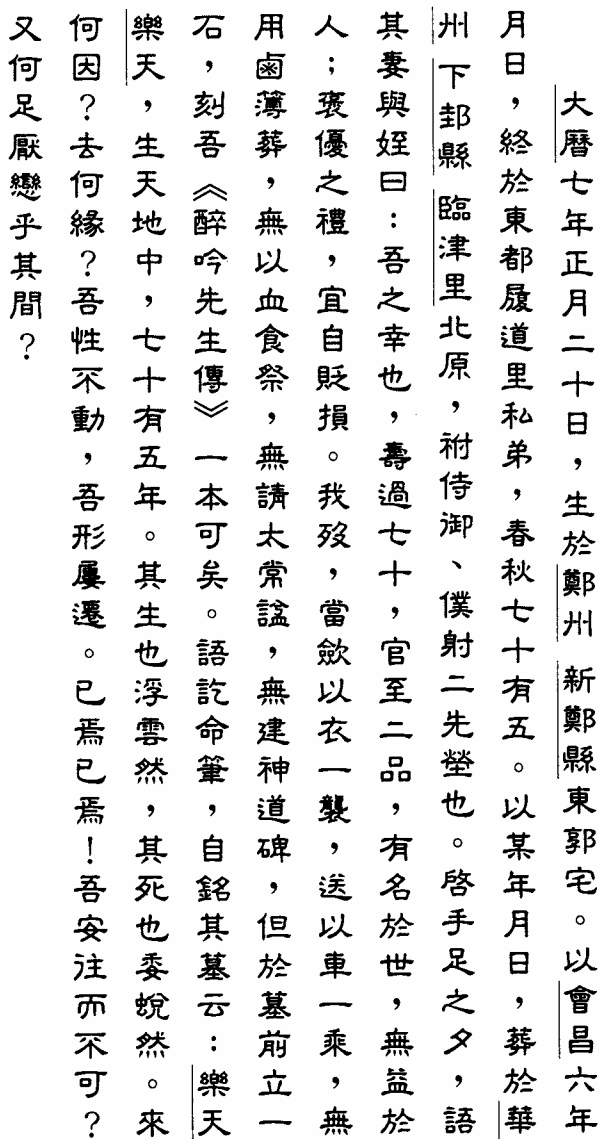 大曆七年正月二十日，生於鄭州 新鄭縣東郭宅。以會昌六年
月日，終於東都履道里私弟，春秋七十有五。以某年月日，葬於華
州 下邽縣 臨津里北原，祔侍御、僕射二先塋也。啓手足之夕，語
其妻與姪曰：吾之幸也，壽過七十，官至二品，有名於世，無益於
人；褒優之禮，宜自貶損。我歿，當斂以衣一襲，送以車一乘，無
用鹵薄葬，無以血食祭，無請太常諡，無建神道碑，但於墓前立一
石，刻吾《醉吟先生傳》一本可矣。語訖命筆，自銘其墓云：樂天
樂天，生天地中，七十有五年。其生也浮雲然，其死也委蛻然。來
何因？去何緣？吾性不動，吾形屢遷。已焉已焉！吾安往而不可？
又何足厭戀乎其間？